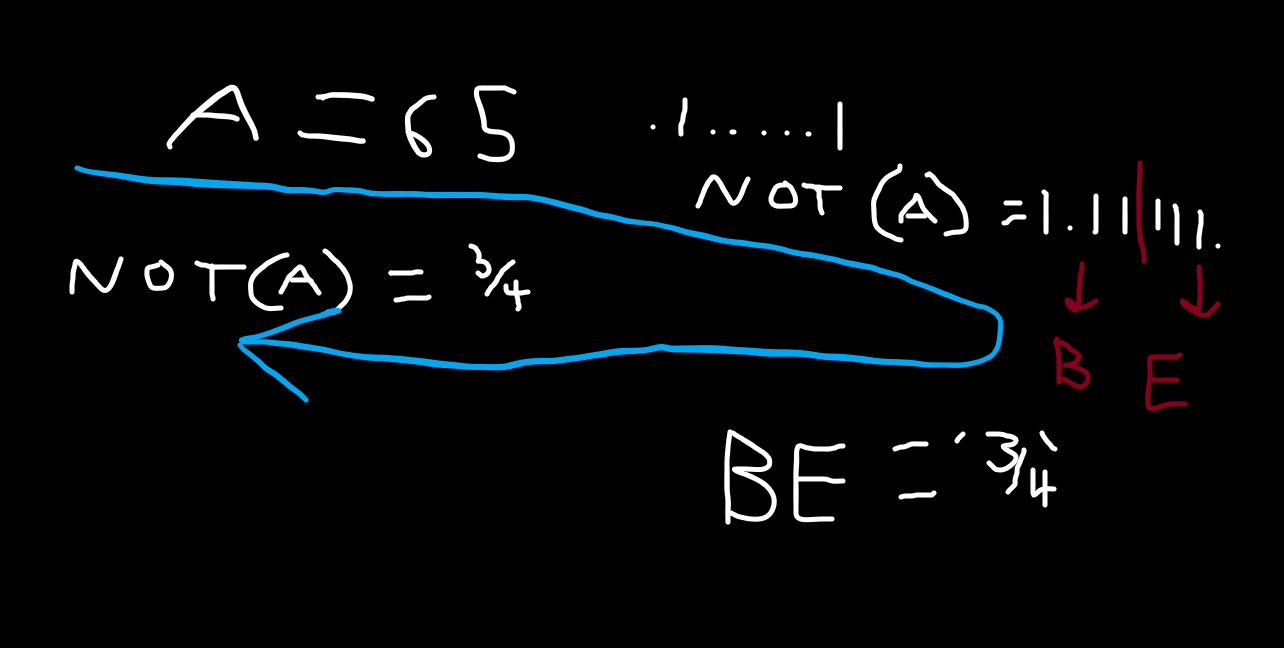 A = 65
.1.....1
NOT(A) = 1.11111.
NOT(A) = 3/4
B E
BE = '3/4'